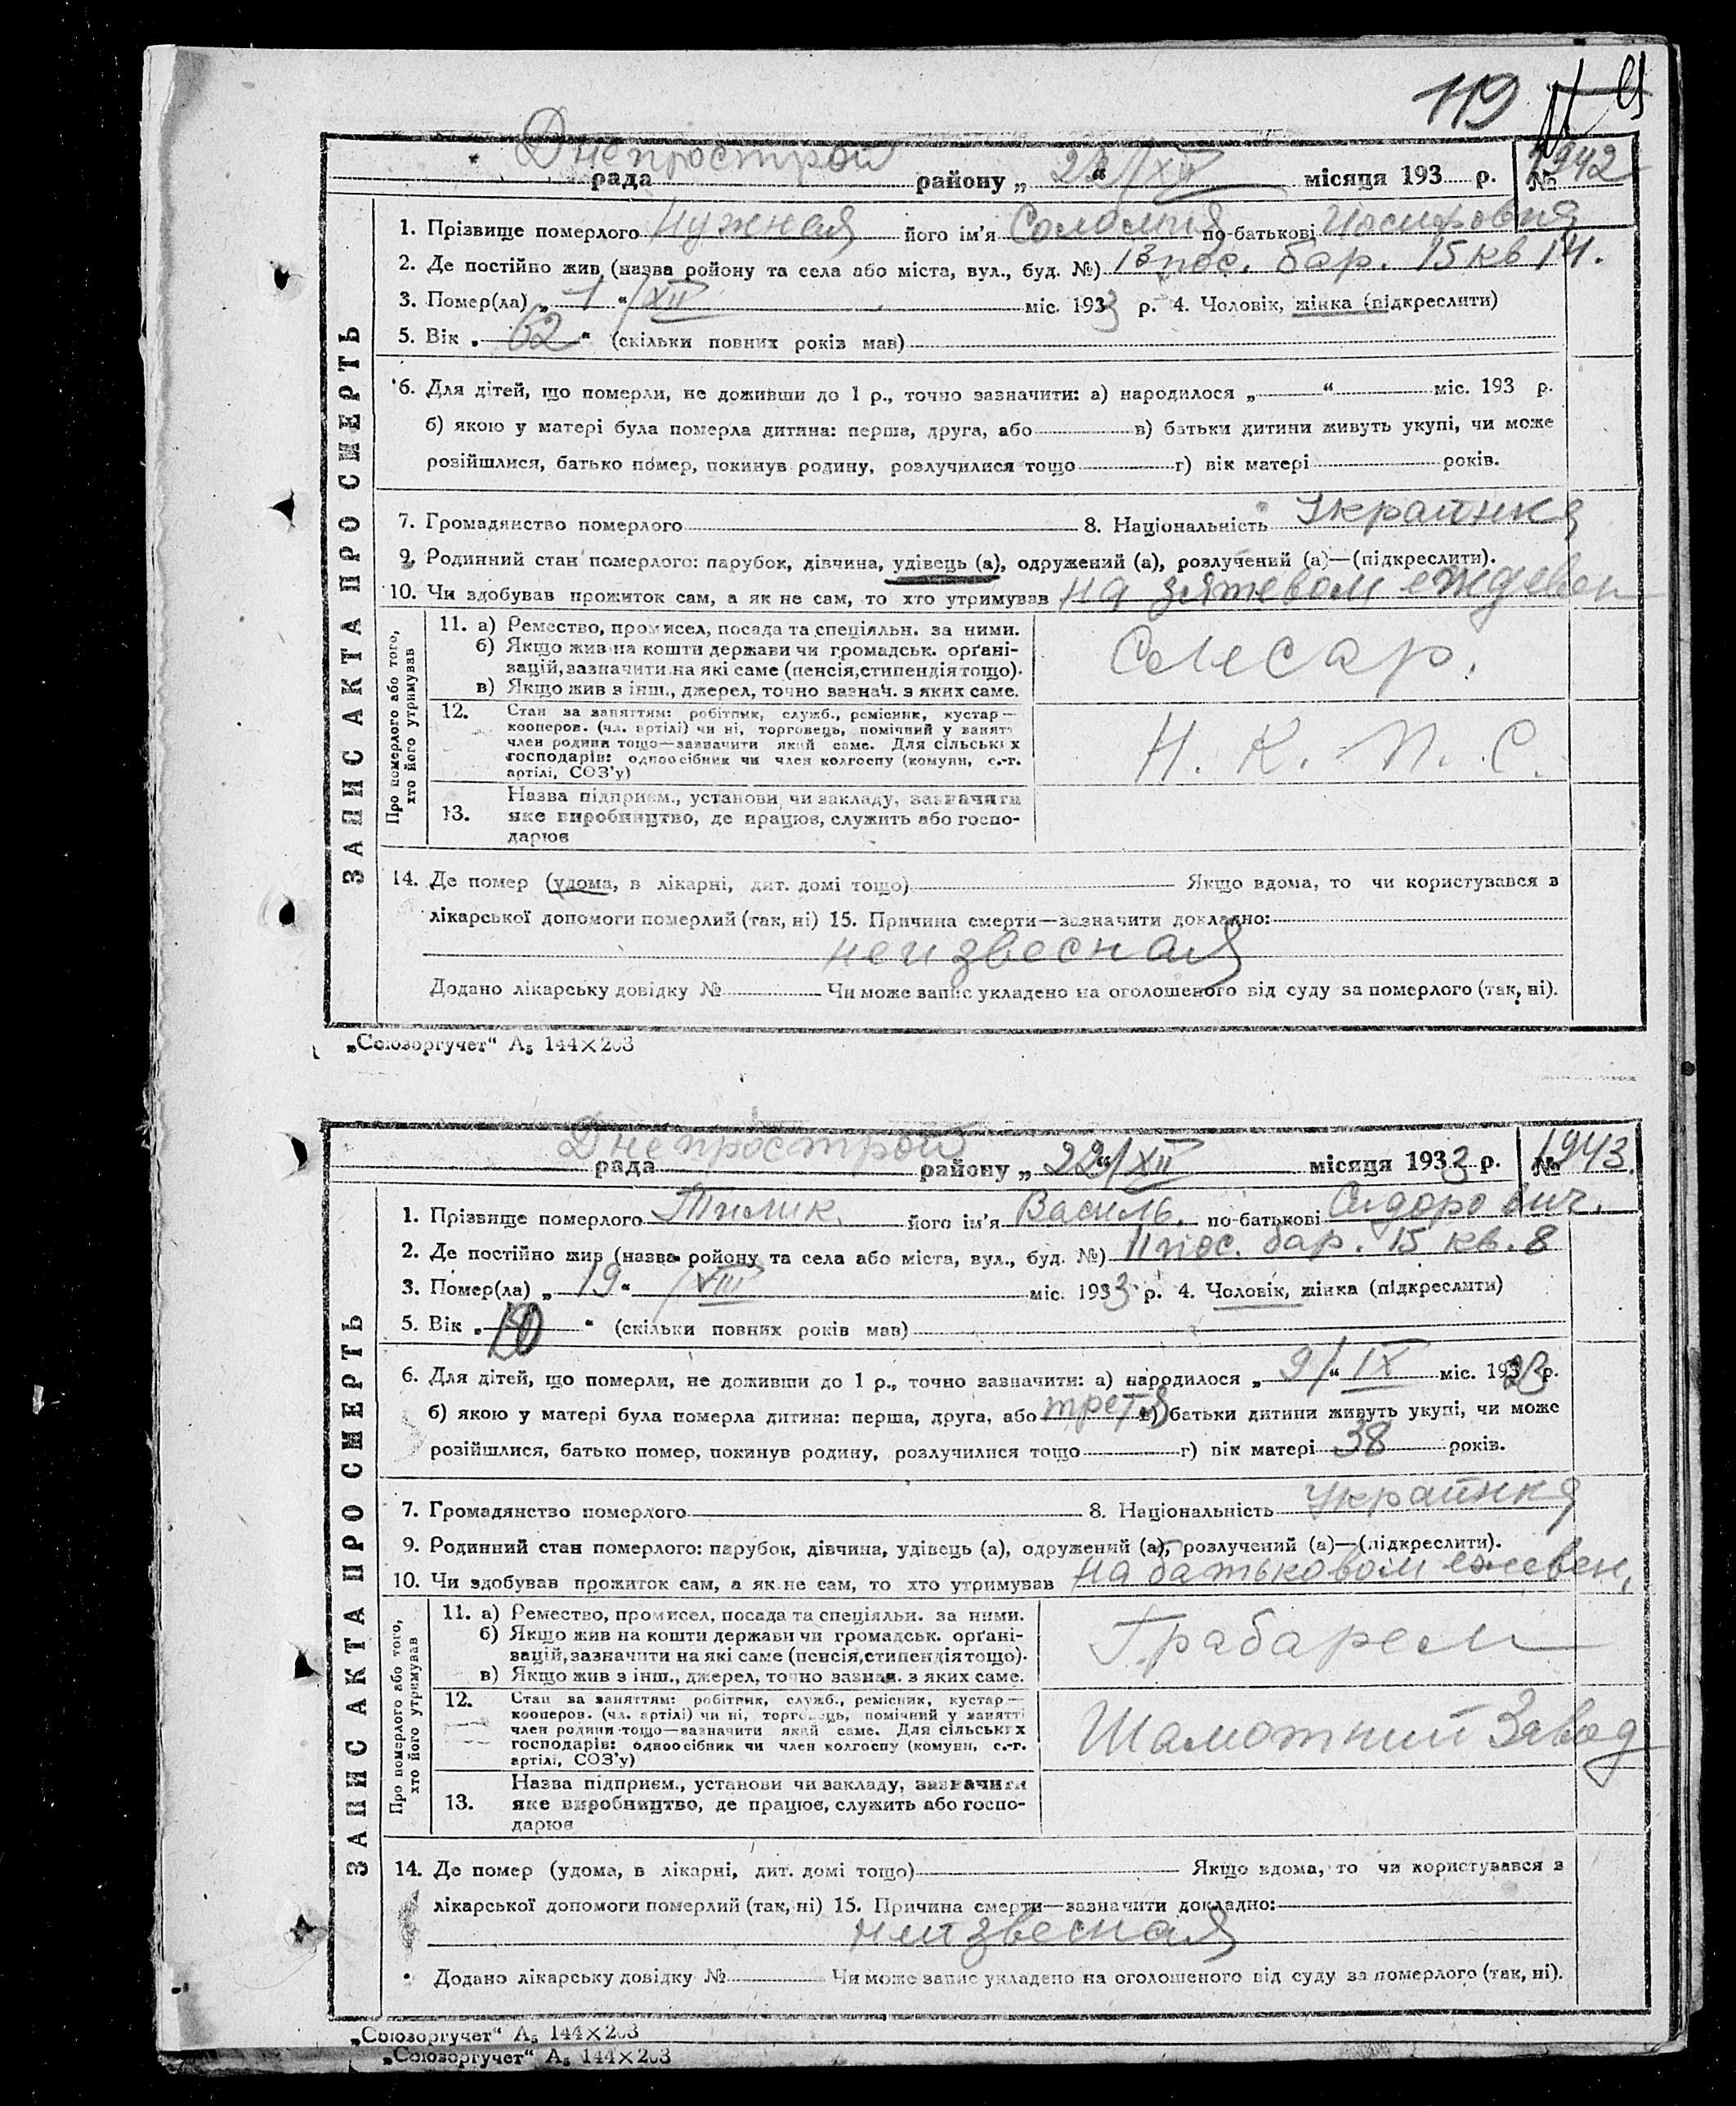 119
Днепрострой
рада районуу „22“/XII місяця 193 р. № 1942
1. Прізвище померлого Нужная його ім’я Соломия по-батькові Иосифовня
2. Де постійно жив (назва ройону та села або міста, вул., буд. №) 13 пос. бар. 15 кв 14.
3. Помер(ла) „1“ /XII міс. 1933 р. 4. Чоловік, жінка (підкреслити)
5. Вік „62“ (скільки повних років мав)
6. Для дітей, що померли, не доживши до 1 р., точно зазначити: а) народилося „ “ міс. 193 р.
б) якою у матері була померла дитина: перша, друга, або в) батьки дитини живуть укупі, чи може
розійшлися, батько помер, покинув родину, розлучилися тощо г) вік матері років.
7. Громадянство померлого 8. Національність Українка
9. Родинний стан померлого: парубок, дівчина, удівець (а), одружений (а), розлучений (а)—(підкреслити).
10. Чи здобував прожиток сам, а як не сам, то хто утримував на зятевом еждевен
ЗАПИС АКТА ПРО СМЕРТЬ
Про померлого або того, хто його утримував
11. а) Ремество, промисел, посада та спеціяльн. за ними.
б) Якщо жив на кошти держави чи громадськ. орґані-
зацій, зазначити на які саме (пенсія, стипендія тощо).
в) Якщо жив з інш., джерел, точно зазнач. з яких саме.
Слесар.
12. Стан за заняттям: робітник, служб., ремісник, кустар—
кооперов. (чл. артілі) чи ні, торговець, помічний у занятті
член родини тощо—зазначити який саме. Для сільських
господарів: одноосібник чи член колгоспу (комуни, с.-г.
артілі, СОЗ’у)
Н. К. П. С.
13. Назва підприєм., установи чи закладу, зазначити
яке виробництво, де працює, служить або госпо-
дарює
14. Де помер (удома, в лікарні, дит. домі тощо) Якщо вдома, то чи користувався з
лікарської допомоги померлий (так, ні) 15. Причина смерти—зазначити докладно:
неизвесная
Додано лікарську довідку № Чи може запис укладено на оголошеного від суду за померлого (так, ні).
„Союзоргучет“ А₅ 144×203
Днепрострой
рада району „22“/XII місяця 1933 р. № 1943.
1. Прізвище померлого Тилик його ім’я Василь. по-батькові Сидорович.
2. Де постійно жив (назва ройону та села або міста, вул., буд. №) 11 пос. бар. 15 кв. 8
3. Помер(ла) „19“ /XIII міс. 1933 р. 4. Чоловік, жінка (підкреслити)
5. Вік „ “ (скільки повних років мав)
6. Для дітей, що померли, не доживши до 1 р., точно зазначити: а) народилося „9/“ IX міс. 1923 р.
б) якою у матері була померла дитина: перша, друга, або третя в) батьки дитини живуть укупі, чи може
розійшлися, батько помер, покинув родину, розлучилися тощо г) вік матері 38 років.
7. Громадянство померлого 8. Національність Українка
9. Родинний стан померлого: парубок, дівчина, удівець (а), одружений (а), розлучений (а)—(підкреслити).
10. Чи здобував прожиток сам, а як не сам, то хто утримував на батьковом ежевен,
ЗАПИС АКТА ПРО СМЕРТЬ
Про померлого або того, хто його утримував
11. а) Ремество, промисел, посада та спеціяльн. за ними.
б) Якщо жив на кошти держави чи громадськ. орґані-
зацій, зазначити на які саме (пенсія, стипендія тощо).
в) Якщо жив з інш., джерел, точно зазнач. з яких саме.
Грабарем
12. Стан за заняттям: робітник, служб., ремісник, кустар—
кооперов. (чл. артілі) чи ні, торговець, помічний у занятті
член родини тощо—зазначити який саме. Для сільських
господарів: одноосібник чи член колгоспу (комуни, с.-г.
артілі, СОЗ’у)
Шамотний Завод
13. Назва підприєм., установи чи закладу, зазначити
яке виробництво, де працює, служить або госпо-
дарює
14. Де помер (удома, в лікарні, дит. домі тощо) Якщо вдома, то чи користувався з
лікарської допомоги померлий (так, ні) 15. Причина смерти—зазначити докладно:
неизвесная
Додано лікарську довідку № Чи може запис укладено на оголошеного від суду за померлого (так, ні).
„Союзоргучет“ А₅ 144×203
„Союзоргучет“ А₅ 144×203